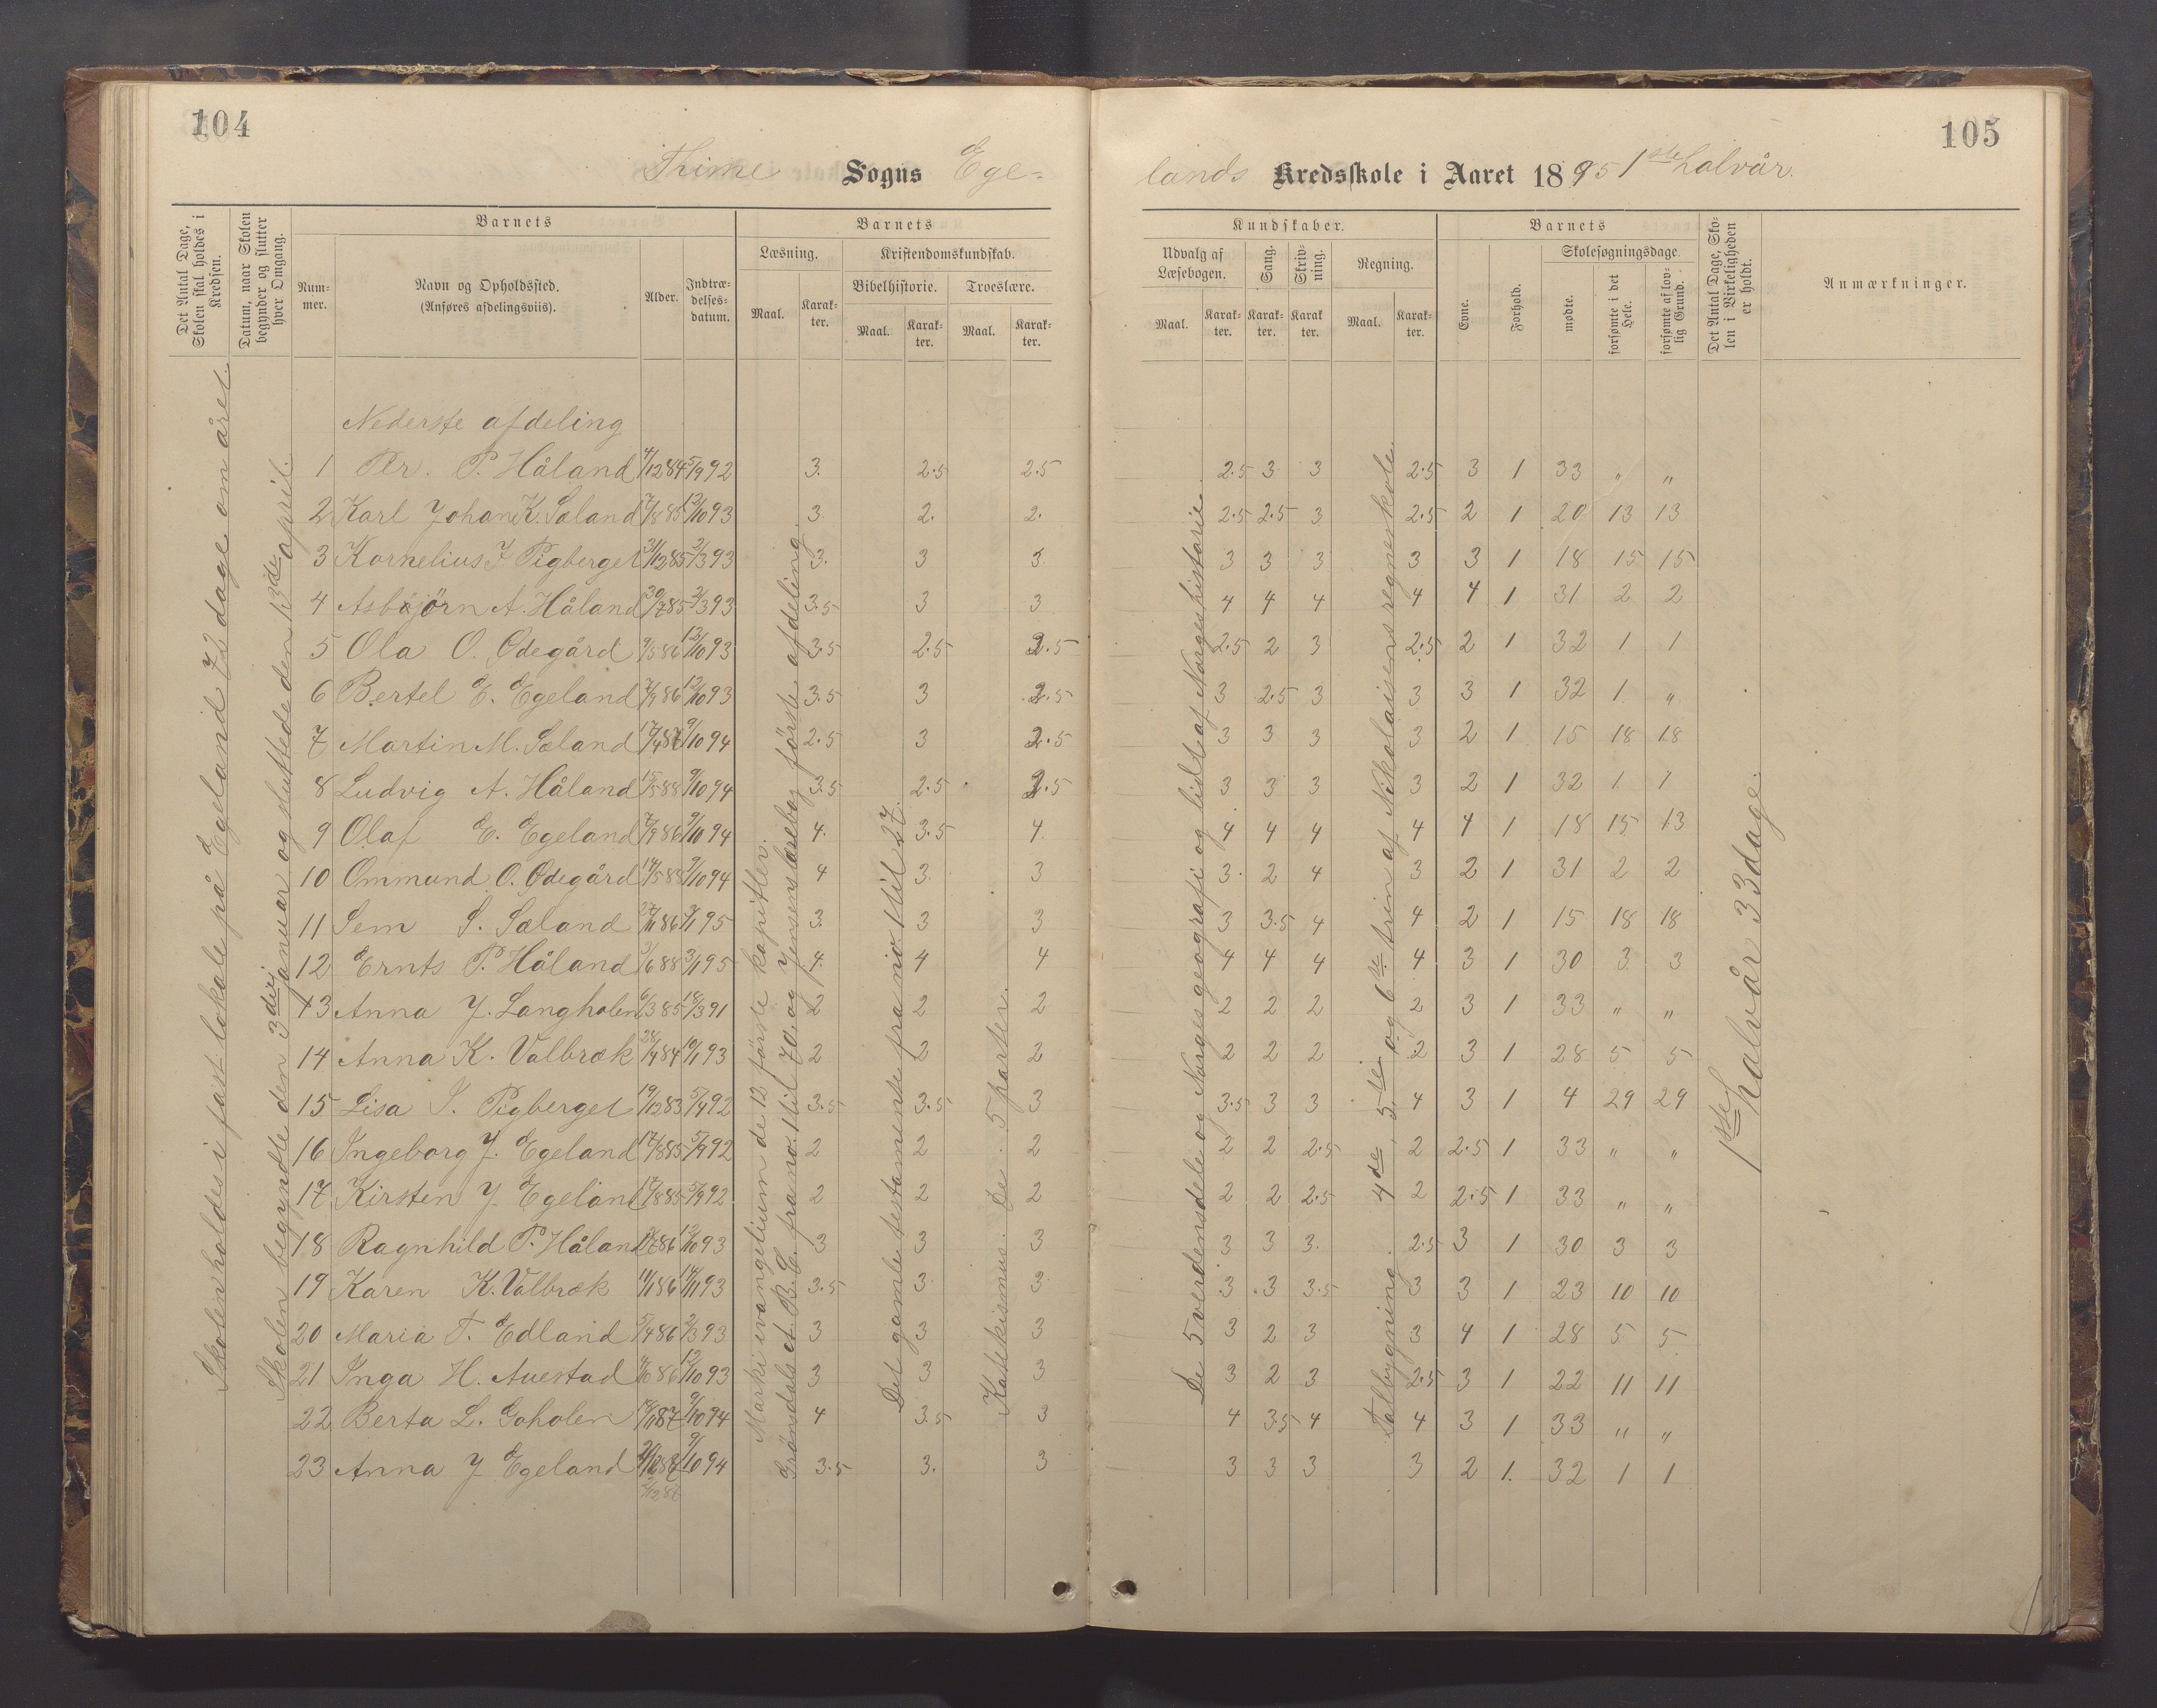 104
105
Thime Sogns Ege-
lands Kredsskole i Aaret 1895 1ste halvår.
Det Antal Dage, Skolen skal holdes i Kredsen.
Datum, naar Skolen begynder og slutter hver Omgang.
Barnets
Nummer.
Navn og Opholdssted.
(Anføres afdelingsviis).
Alder.
Indtrædelsesdatum.
Barnets
Læsning.
Maal.
Karakter.
Kristendomskundskab.
Bibelhistorie.
Maal.
Karakter.
Troeslære.
Maal.
Karakter.
Kundskaber.
Udvalg af Læsebogen.
Maal.
Karakter.
Sang.
Karakter.
Skrivning.
Karakter.
Regning.
Maal.
Karakter.
Barnets
Evne.
Forhold.
Skolesøgningsdage.
mødte.
forsømte i det Hele.
forsømte af lovlig Grund.
Det Antal Dage, Skolen i Virkeligheden er holdt.
Anmærkninger.
Skolen holdes i fast lokale på Egeland 72 dage om året.
Skolen begyndte den 3die januar og sluttede den 13de april.
Marki evangelium de 12 første kapitler.
Grøndals et B. C. fra no. 1 til 70. og Jensens læsebog første afdeling
Det gamle testamente fra no 1 til 27.
Katekismus. De 5 parter.
De 5 verdensdele og Norges geografi og lidt af Norges historie.
Talbygning. 4de, 5te og 6te trin af Nikolaisens regneskole.
1ste halvår 33 dage.
Nederste afdeling
1 Per. P. Håland 4/12 84 5/9 92 3. 2.5 2.5 2.5 3 3 2.5 3 1 33 " "
2 Karl Johan K. Sæland 17/8 85 12/10 93 3. 2. 2. 2.5 2.5 3 2.5 2 1 20 13 13
3 Kornelius J Pigberget 31/12 85 2/3 93 3. 3 3. 3 3 3 3 3 1 18 15 15
4 Asbjörn A. Håland 30/7 85 2/3 93 3.5 3 3 4 4 4 4 4 1 31 2 2
5 Ola O. Ødegård 9/5 86 12/10 93 3.5 2.5 2.5 2.5 2 3 2.5 2 1 32 1 1
6 Bertel E. Egeland 7/9 86 12/10 93 3.5 3 2.5 3 2.5 3 3 3 1 32 1 "
7 Martin M. Sæland 17/4 87 9/10 94 2.5 3 2.5 3 3 3 3 2 1 15 18 18
8 Ludvig A. Håland 15/5 88 9/10 94 3.5 2.5 2.5 3 3 3 3 2 1 32 1 1
9 Olaf E. Egeland 7/9 86 9/10 94 4. 3.5 4. 4 4 4 4 4 1 18 15 13
10 Ommund O. Ødegård 14/5 88 9/10 94 4 3. 3 3. 2 4 3 2 1 31 2 2
11 Sem S. Sæland 27/11 86 3/1 95 3. 3 3 3 3.5 4 4 2 1 15 18 18
12 Ernts P. Håland 3/6 88 3/1 95 4. 4 4 4 4 4 4 3 1 30 3 3
13 Anna J. Langholen 6/3 85 18/3 91 2 2 2 2 2 2 2 3 1 33 " "
14 Anna K. Valbræk 28/4 84 10/1 93 2 2 2 2 2 2 2 3 1 28 5 5
15 Lisa J. Pigberget 19/12 83 5/4 92 3.5 3.5 3 3.5 3 3 4 3 1 4 29 29
16 Ingeborg J. Egeland 17/8 85 5/9 92 2 2 2 2 2 2.5 2 2.5 1 33 " "
17 Kirsten J. Egeland 17/8 85 5/9 92 2 2 2 2 2 2.5 2 2.5 1 33 " "
18 Ragnhild P. Håland 86 12/10 93 3 3 3 3 3 3. 2.5 3 1 30 3 3
19 Karen K. Valbræk 86 93 3.5 3 3 3 3 3.5 3 3 1 23 10 10
20 Maria T. Edland 5/4 86 2/3 93 3 3 3 3 2 3 3 4 1 28 5 5
21 Inga H. Auestad 86 12/10 93 3 3 3 3 2 3 2.5 3 1 22 11 11
22 Berta L. Goholen 87 9/10 94 4 3.5 3 4 3.5 4 4 3 1 33 " "
23 Anna J Egeland 9/10 94 3.5 3. 3 3 3 3 3 2 1. 32 1 1